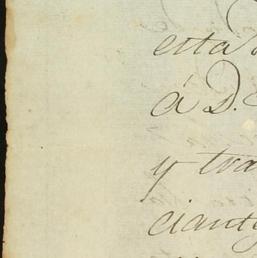 esta
á D.
y tra
ciant